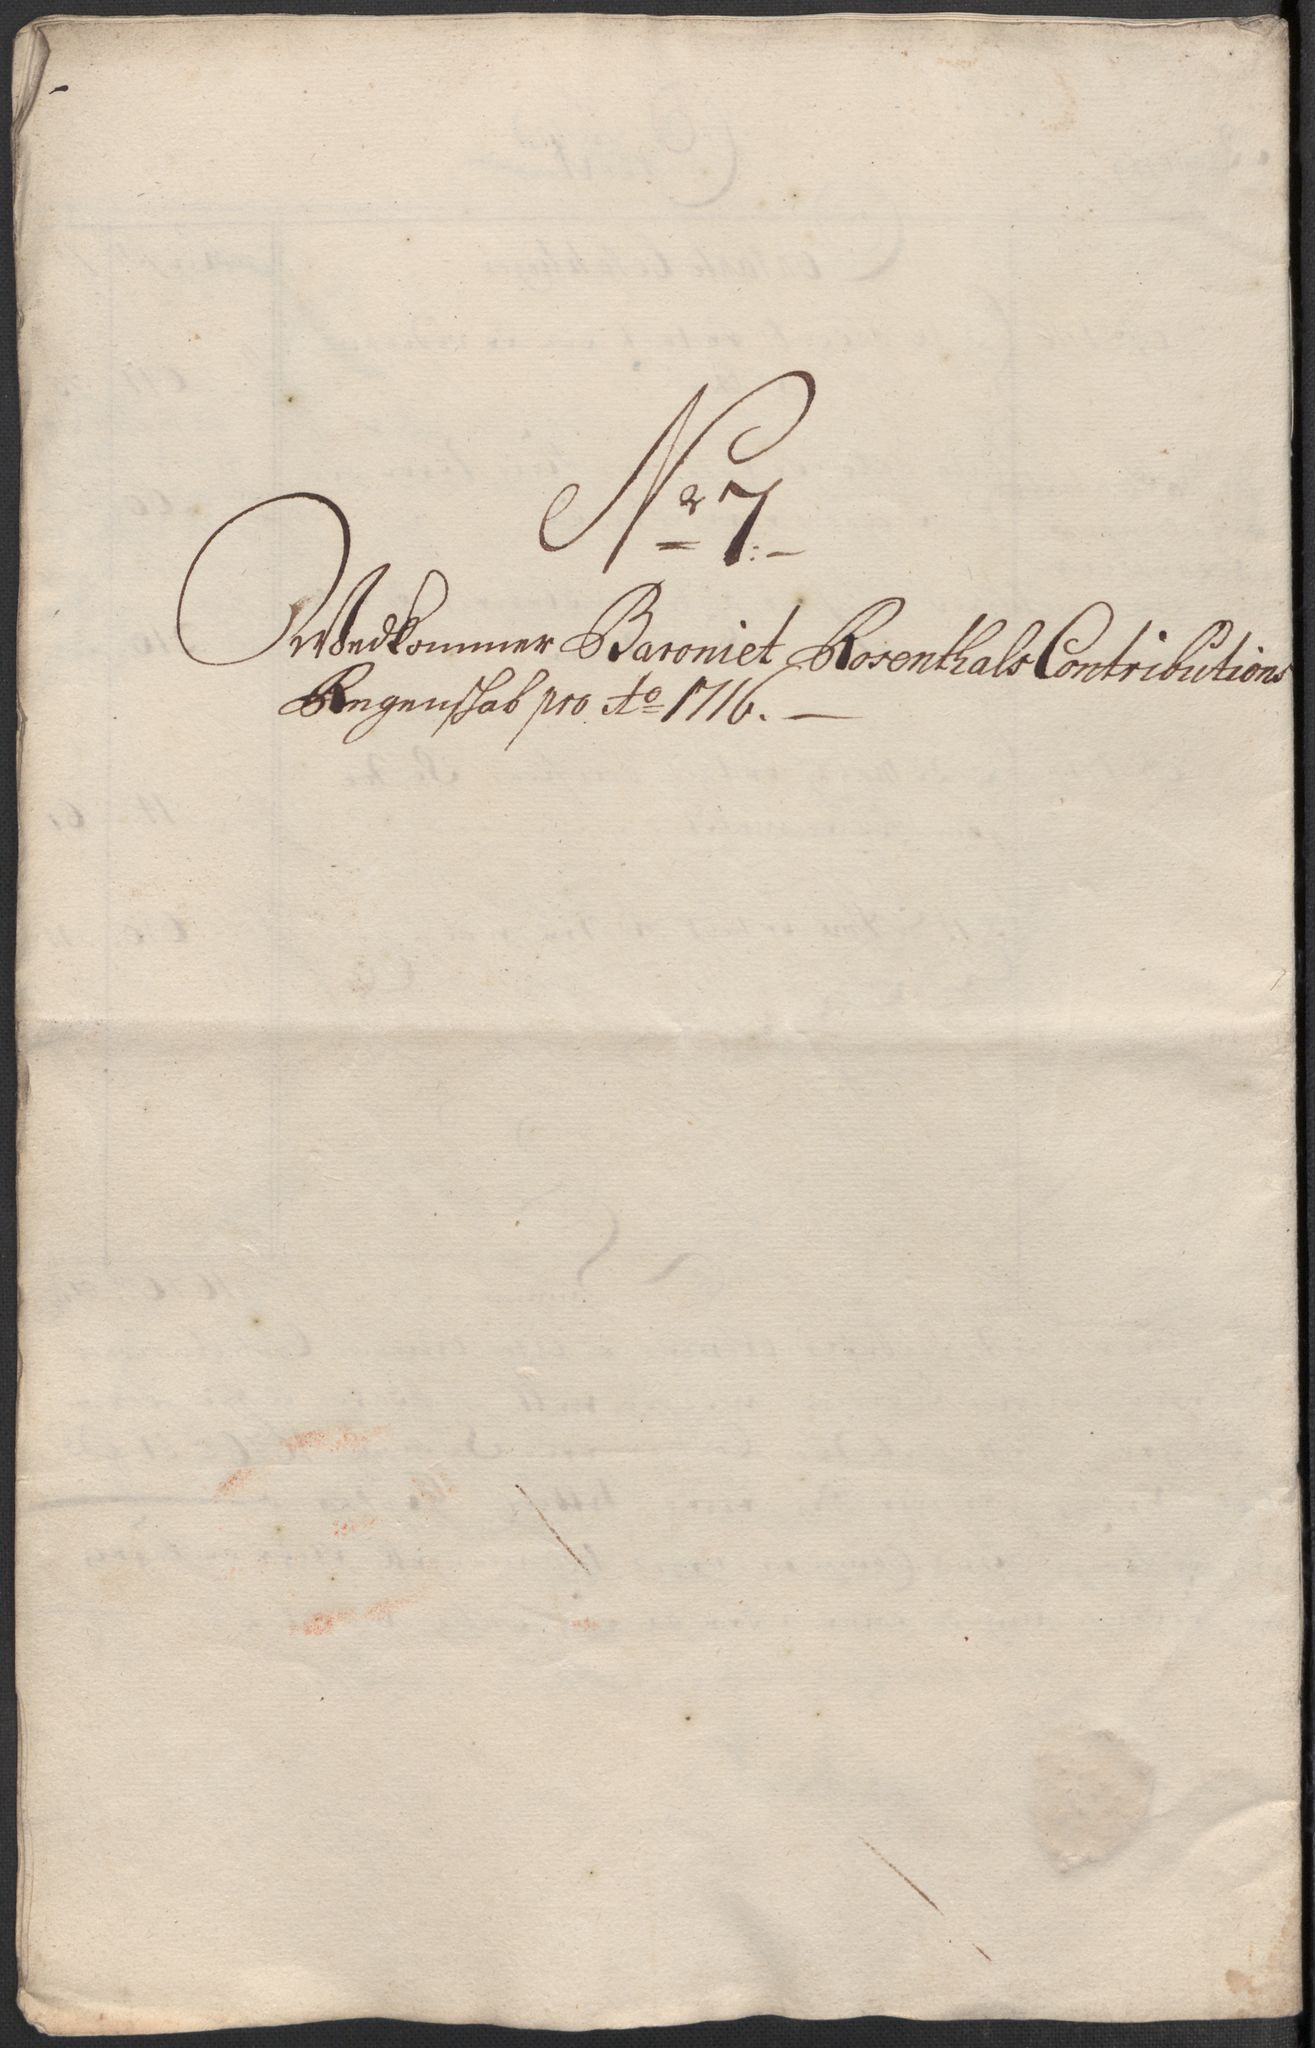 No 7.
Wedkommer Baroniet Rosenthals Contributions
Regenschab pro Ao 1716.